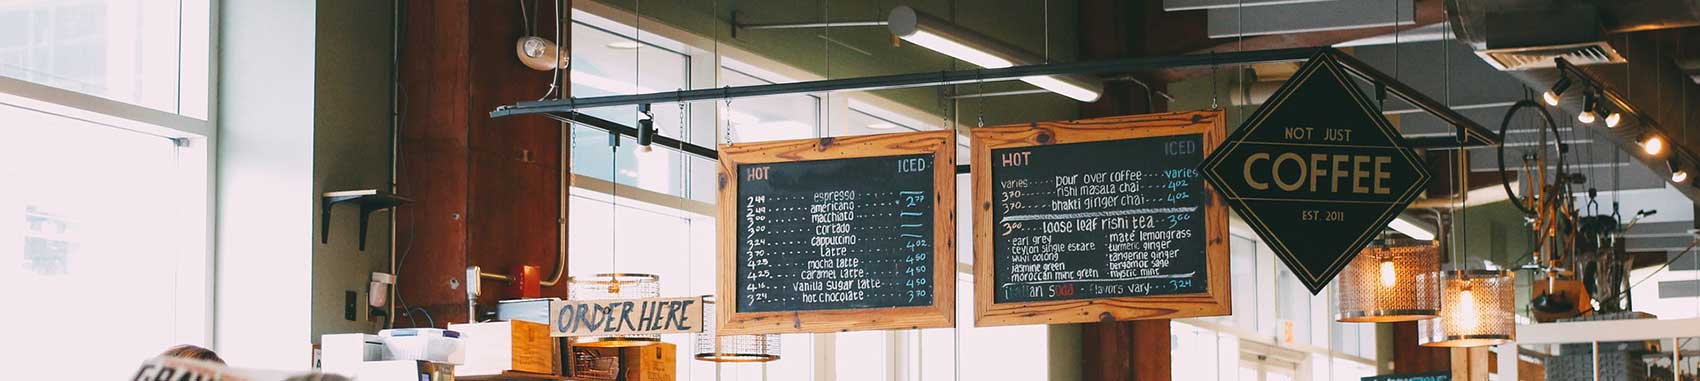 HOT ICED
2.49 espresso
2.49 americano 2.77
3.00 macchiato
3.00 cortado
3.24 cappuccino
3.70 latte 4.02
4.25 mocha latte 4.50
4.25 caramel latte 4.50
4.16 vanilla sugar latte 4.50
3.24 hot chocolate 3.70
HOT ICED
varies pour over coffee varies
3.70 rishi masala chai 4.02
3.70 bhakti ginger chai 4.02
3.00 loose leaf rishi tea 3.00
· earl grey · maté lemongrass
· ceylon single estate · turmeric ginger
· wuyi oolong · tangerine ginger
· jasmine green · bergamot sage
· moroccan mint green · mystic mint
italian soda - flavors vary 3.24
NOT JUST
COFFEE
EST. 2011
ORDER HERE